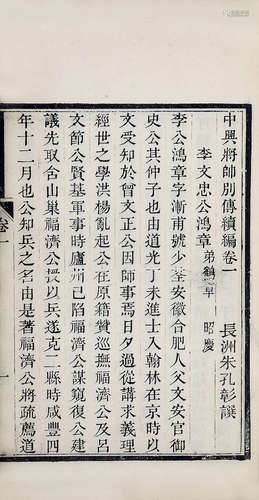 中興將師別傳續編卷一
長洲朱孔彰譔
李文忠公鴻章 弟鶴章 昭慶
李公鴻章字漸甫號少荃安徽合肥人父文安官御
史公其仲子也由道光丁未進士入翰林在京時以
文受知於曾文正公因師事焉日夕過從講求義理
經世之學洪楊亂起公在原籍贊巡撫福濟公及呂
文節公賢基軍事時廬州已陷福濟公謀窺復公建
議先取含山巢福濟公授以兵遂克二縣時咸豐四
年十二月也公知兵之名由是著福濟公將疏薦道
卷一
一